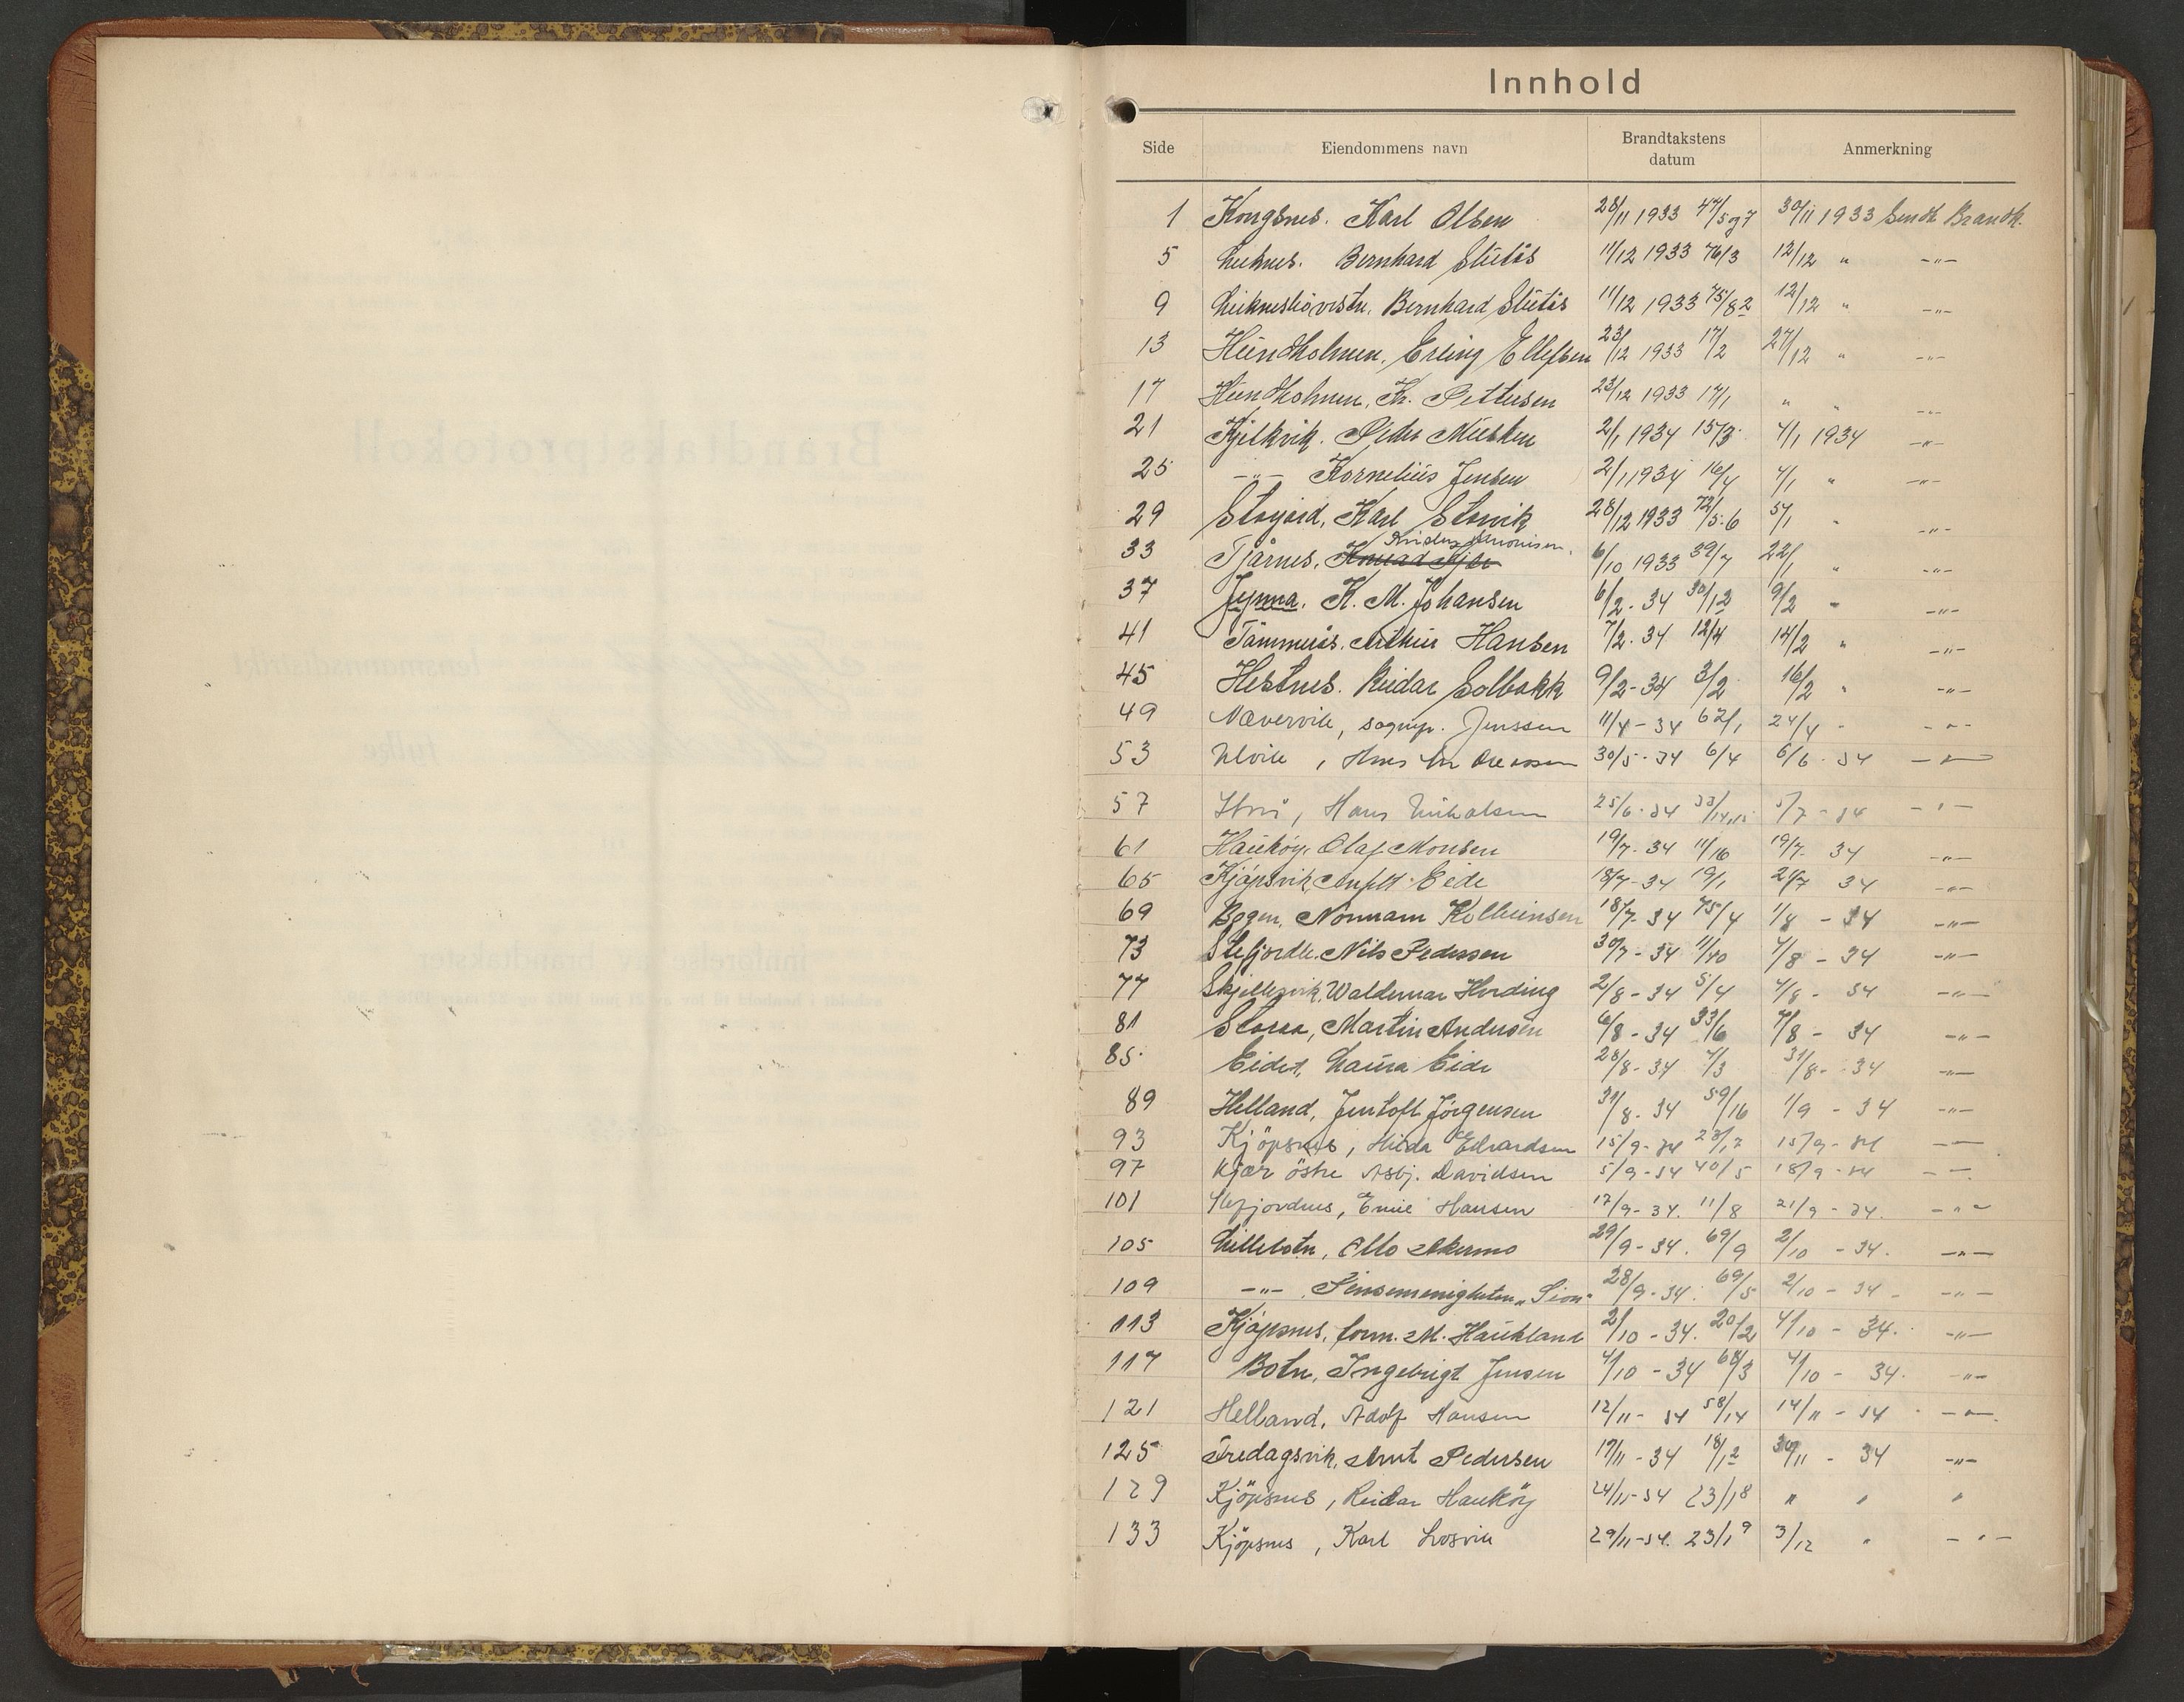 Innhold
Side Eiendommens navn Brandtakstens datum Anmerkning
1 Kongsnes. Karl Olsen 28/11 1933 47/5 og 7 30/11 1933 Sendt Brandk.
5 Leiknes. Bernhard Slåtås 11/12 1933 76/3 12/12 " -"-
9 Bernhard Slåtås 11/12 1933 75/82 12/12 " -"-
13 Hundholmen, Erling Ellefsen 23/12 1933 17/2 27/12 " -"-
17 Hundholmen, Kr. Pettersen 23/12 1933 17/1 " " -"-
21 Kjelkvik. Peder 2/1 1934 15/3 4/1 1934 -"-
25 -"- Kornelius Jensen 2/1 1934 16/4 4/1 " -"-
29 Storjord, Karl Storvik 28/12 1933 72/5.6 5/1 " -"-
33 Tjårnes, 6/10 1933 39/7 22/1 " -"-
37 Jynna. K. M. Johansen 6/2 - 34 30/12 9/2 " -"-
41 Tømmerås. Arthur Hansen 7/2 - 34 12/4 14/2 " -"-
45 Hestnes. Reidar Solbakk 9/2 - 34 3/2 16/2 " -"-
49 Nævervik, sognepr. Jenssen 11/4 - 34 62/1 24/4 " -"-
53 Ulvik, 30/5 - 34 6/4 6/6 - 34 -"-
57 Hans 25/6 - 34 33/14,15 5/7 - 34 -"-
61 Haukøy, Olaf Monsen 19/7 - 34 11/16 19/7 - 34 -"-
65 Kjøpsvik, Eide 18/7 - 34 19/1 21/7 34 -"-
69 Bogen, Normann Kolbeinsen 18/7 - 34 75/4 1/8 - 34 -"-
73 Nils Pedersen 30/7 - 34 11/40 4/8 - 34 -"-
77 Skjellesvik, Waldemar Hording 2/8 - 34 5/4 4/8 - 34 -"-
81 Storaa, Martin Andersen 6/8 - 34 33/6 7/8 - 34 -"-
85 Eidet, Laura Eide 28/8 - 34 4/3 31/8 - 34 -"-
89 Helland, Jentoft Jørgensen 31/8 - 34 59/16 1/9 - 34 -"-
93 Kjöpsnes, Hilda Edvardsen 15/9 - 34 23/17 15/9 - 34 -"-
97 Kjær östre Asbj. Davidsen 5/9 - 34 40/5 18/9 - 34 -"-
101 Stefjordnes, Emil Hansen 17/9 - 34. 11/8 21/9 - 34. -"-
105 Lillebotn, Otto Akermo 29/9 - 34. 69/9 2/10 - 34. -"-
109 -"- , Pinsemenigheten „Sion" 28/9 - 34. 69/5 2/10 - 34 -"-
113 Kjøpsnes, form. M. Haukland 2/10 - 34. 20/2 4/10 - 34. -"-
117 Botn, Ingebrigt Jensen 4/10 - 34 68/3 4/10 - 34. -"-
121 Helland, Adolf Hansen 12/11 - 34 58/14 14/11 - 34 -"-
125 Fredagsvik, Arnt Pedersen 17/11 - 34 18/12 30/11 - 34 -"-
129 Kjöpsnes, Reidar Hauköy 24/11 - 34 23/18 " " "
133 Kjöpsnes, Karl Losvik 29/11 - 34. 23/19 3/12 " -"-